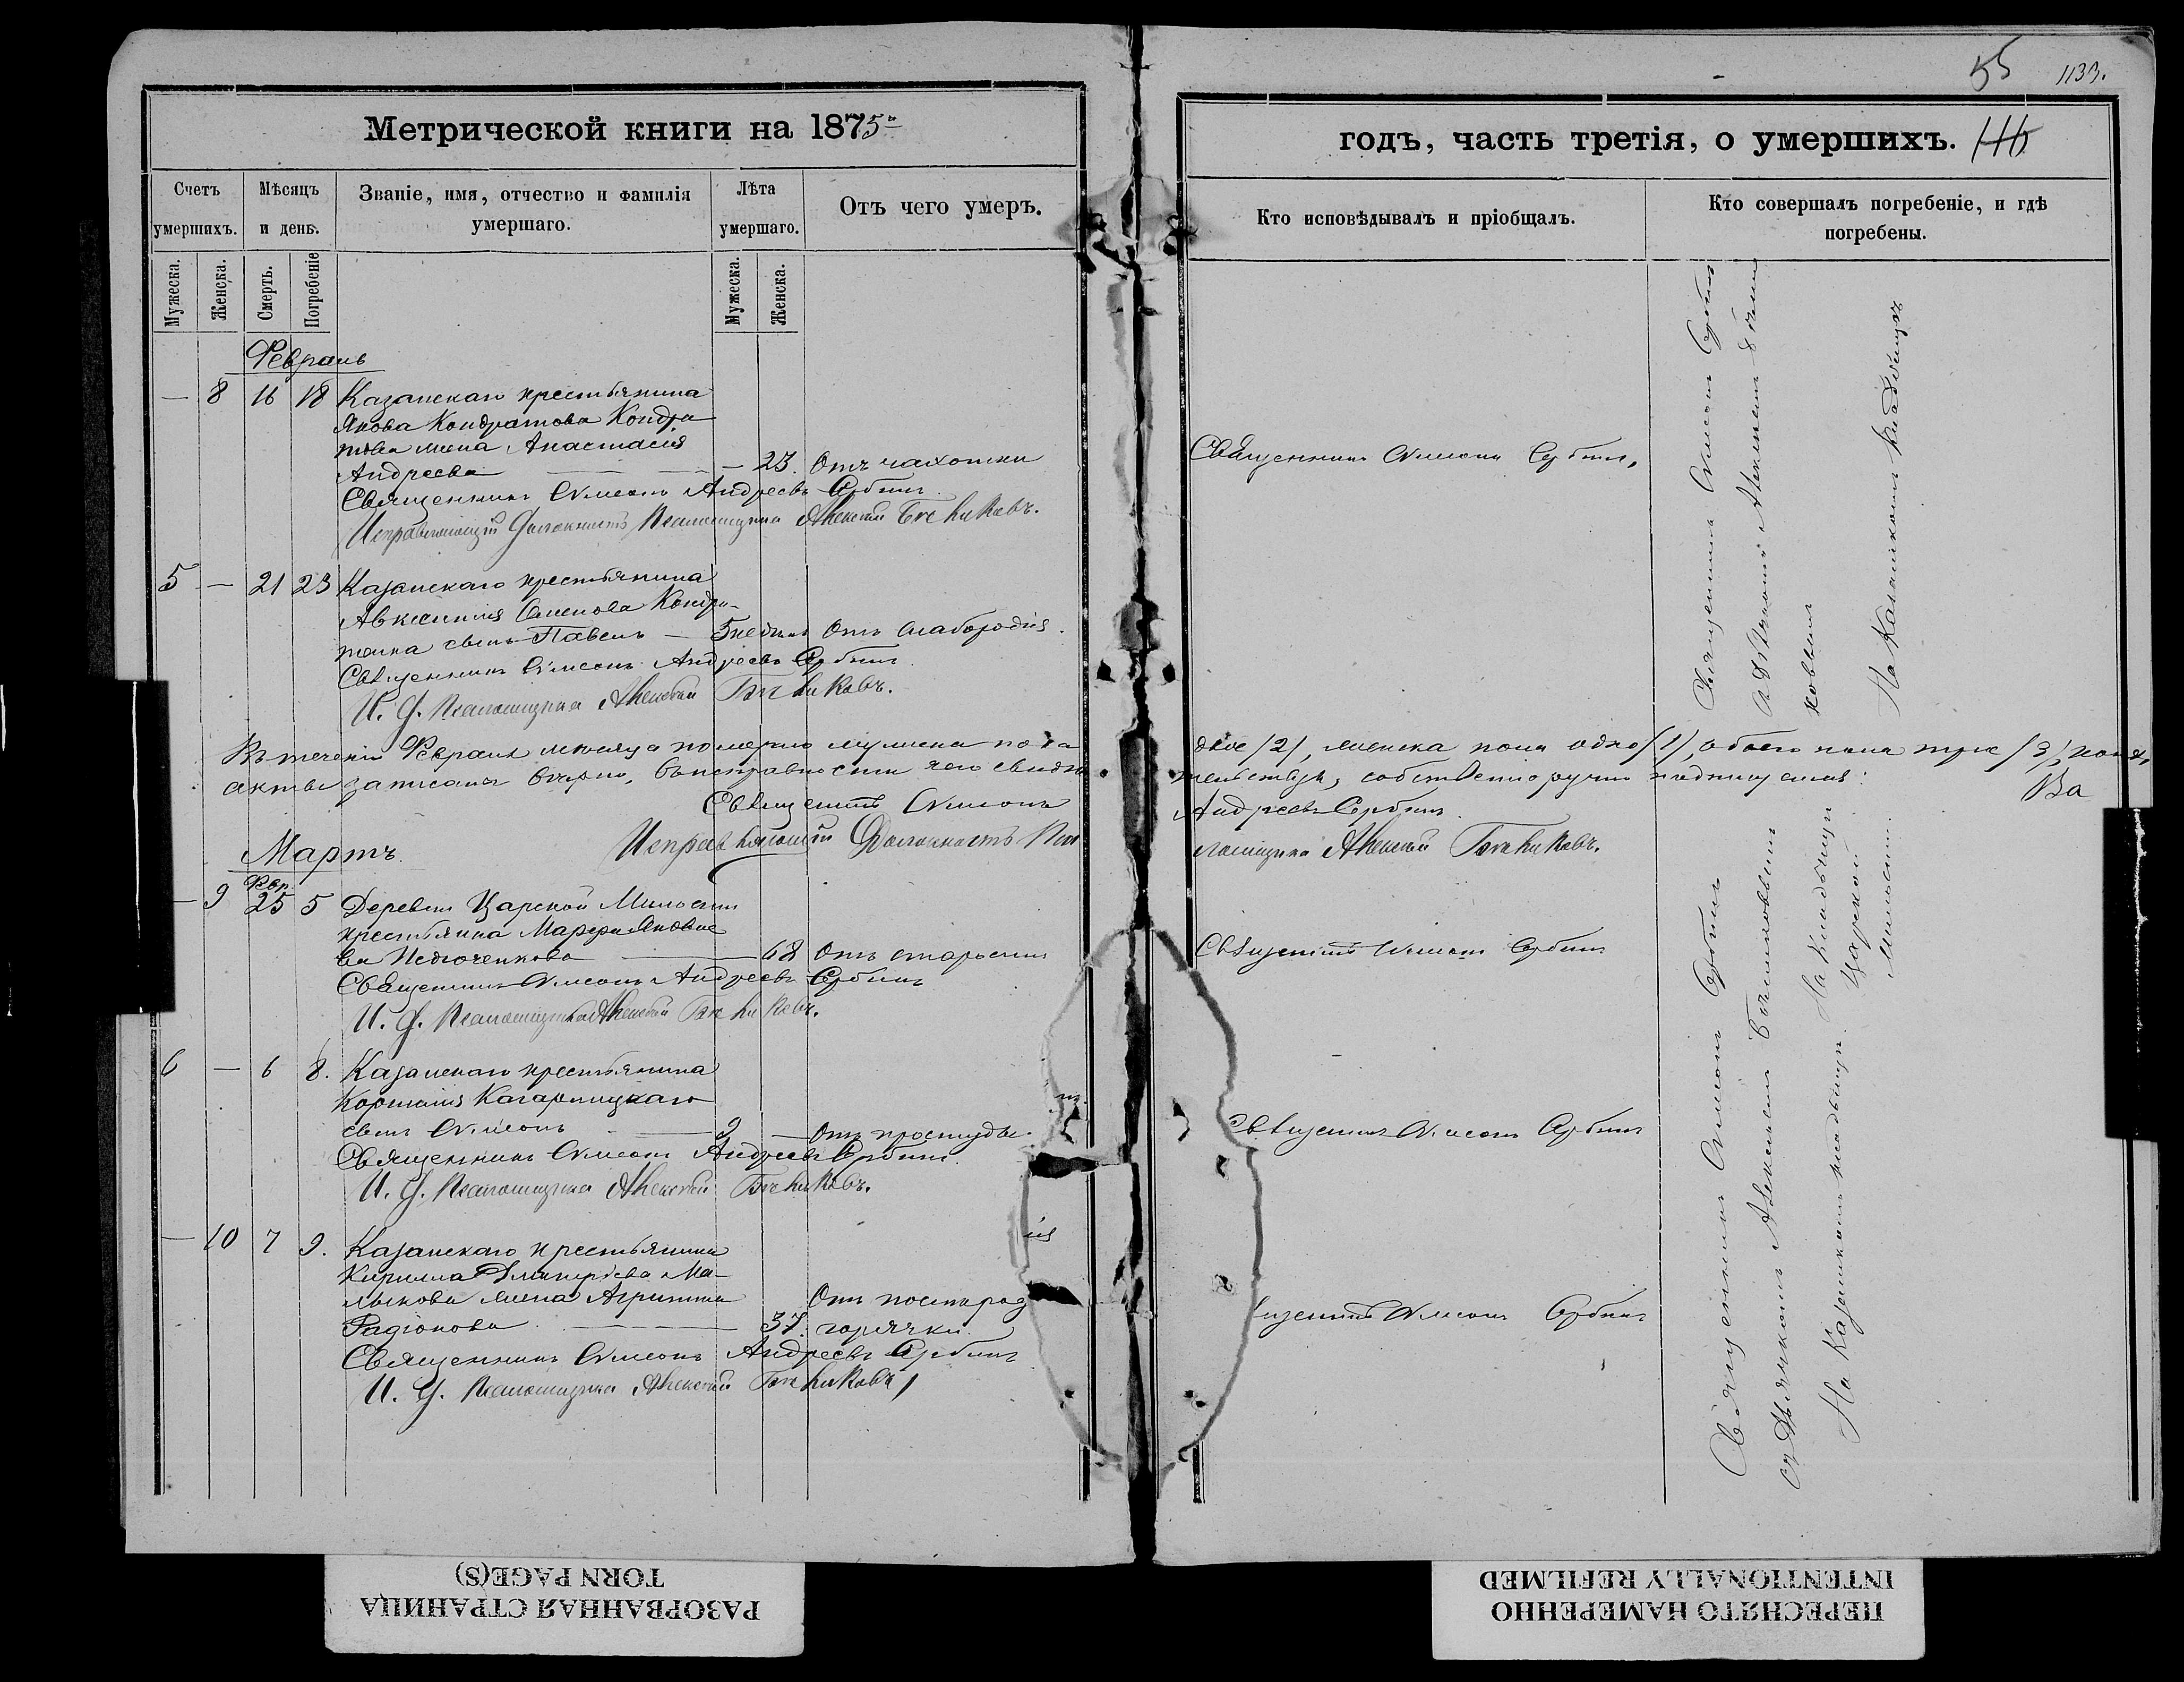 55 1133.
Метрической книги на 1875й
годъ, часть третія, о умершихъ. 116
Счетъ умершихъ.
Мѣсяцъ и день.
Званіе, имя, отчество и фамилія умершаго.
Лѣта умершаго.
Отъ чего умеръ.
Кто исповѣдывалъ и пріобщалъ.
Кто совершалъ погребеніе, и гдѣ погребены.
Мужеска. Женска. Смерть. Погребеніе
Мужеска. Женска.
Февраль
— 8 16 18 Казанскаго крестьянина
Якова Кондратова Кондра
това жена Анастасія
Андреева — 23. Отъ чахотки
Священникъ Симеонъ Андреевъ Сербинъ
Исправляющій Должность Псаломщика Алексѣй
Священникъ Симеонъ Сербинъ,
Священникъ Симеонъ Сербинъ
На Казанскомъ кладбищѣ
5 — 21 23 Казанскаго крестьянина
Авксентія Семенова Кондра-
тенка сынъ Павелъ — 5 недѣль Отъ слабородія.
Священникъ Симеонъ Андреевъ Сербинъ
И. Д. Псаломщика Алексѣй
Въ теченіи Февраля мѣсяца померло мужеска пола
двое /2/, женска пола одно /1/, обоего пола трое /3/,
акты записаны вѣрно,
собственоручно подписуемся:
Ва
Священникъ Симеонъ
Андреевъ Сербинъ
Исправляющій Должность Пса
ломщика Алексѣй
Мартъ.
Фвр.
— 9 25 5 Деревни Царской Милости
крестьянка Марфа Яковле
ва — 68 Отъ старости
Священникъ Симеонъ Андреевъ Сербинъ
И. Д. Псаломщика Алексѣй
Священникъ Симеонъ Сербинъ
На кладбищѣ
Царской
Милости.
6 — 6 8. Казанскаго крестьянина
Корнилія Кагарлицкаго
сынъ Симеонъ — 9 — Отъ простуды.
Священникъ Симеонъ Андреевъ Сербинъ.
И. Д. Псаломщика Алексѣй
Священникъ Симеонъ Сербинъ
— 10 7 9. Казанскаго крестьянина
Кирилла Димитріева Ма-
лыкова жена Агрипина
Радіонова — 37. Отъ послѣрод
горячки.
Священникъ Симеонъ Андреевъ Сербинъ
И. Д. Псаломщика Алексѣй
щенникъ Симеонъ Сербинъ
Священникъ Симеонъ Сербинъ
На Казанскомъ кладбищѣ.
РАЗОРВАННАЯ СТРАНИЦА
TORN PAGE(S)
ПЕРЕСНЯТО НАМЕРЕННО
INTENTIONALLY REFILMED